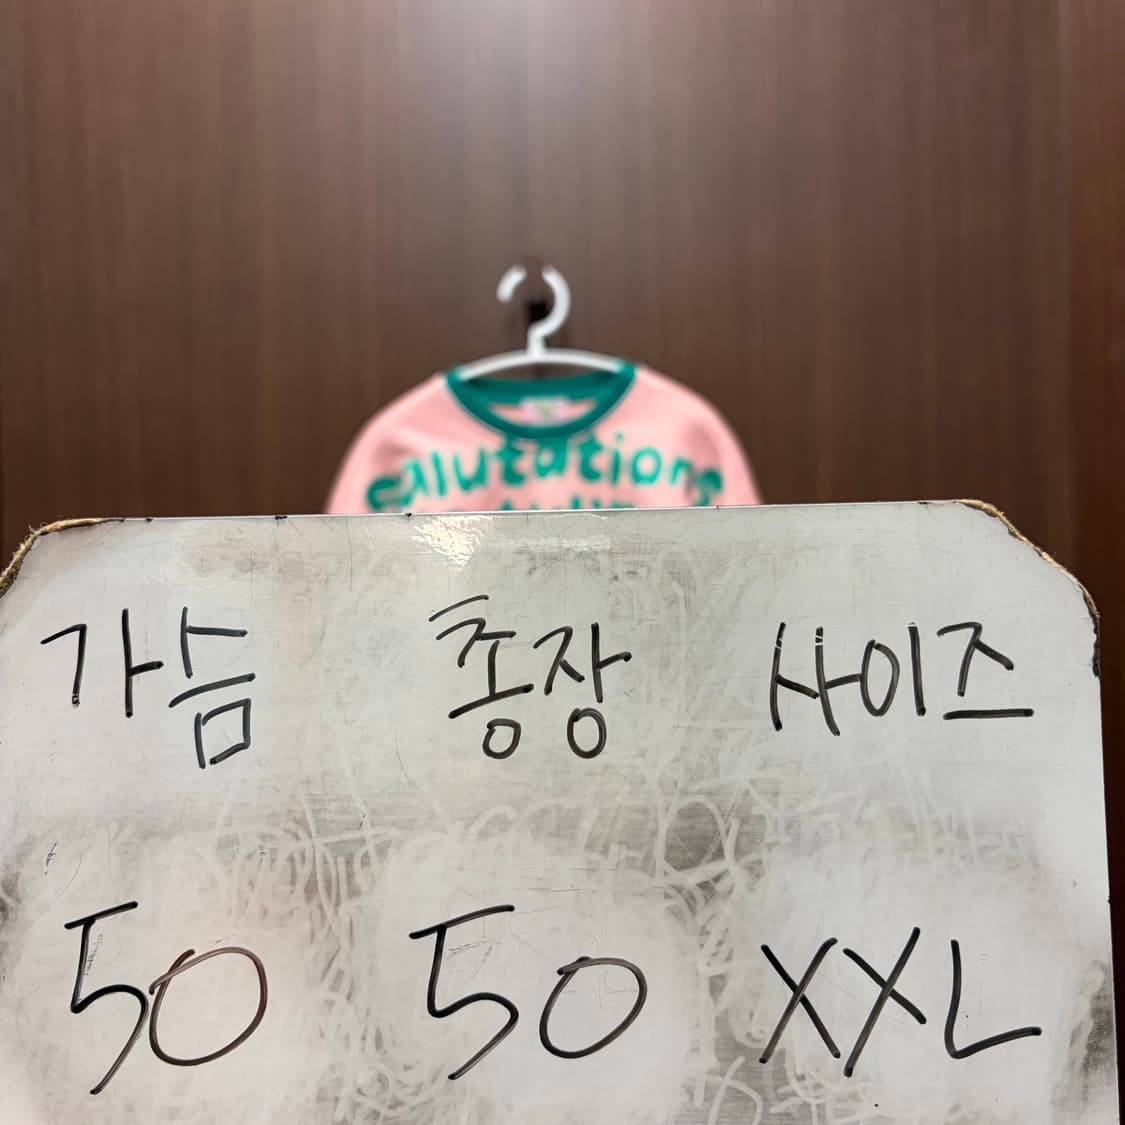 salutations
가슴 총장 사이즈
50 50 XXL